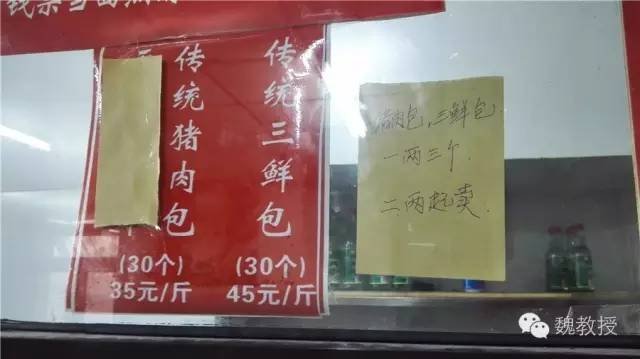 钱票当面点清
传统猪肉包
(30个)
35元/斤
传统三鲜包
(30个)
45元/斤
猪肉包,三鲜包
一两三个.
二两起卖.
魏教授